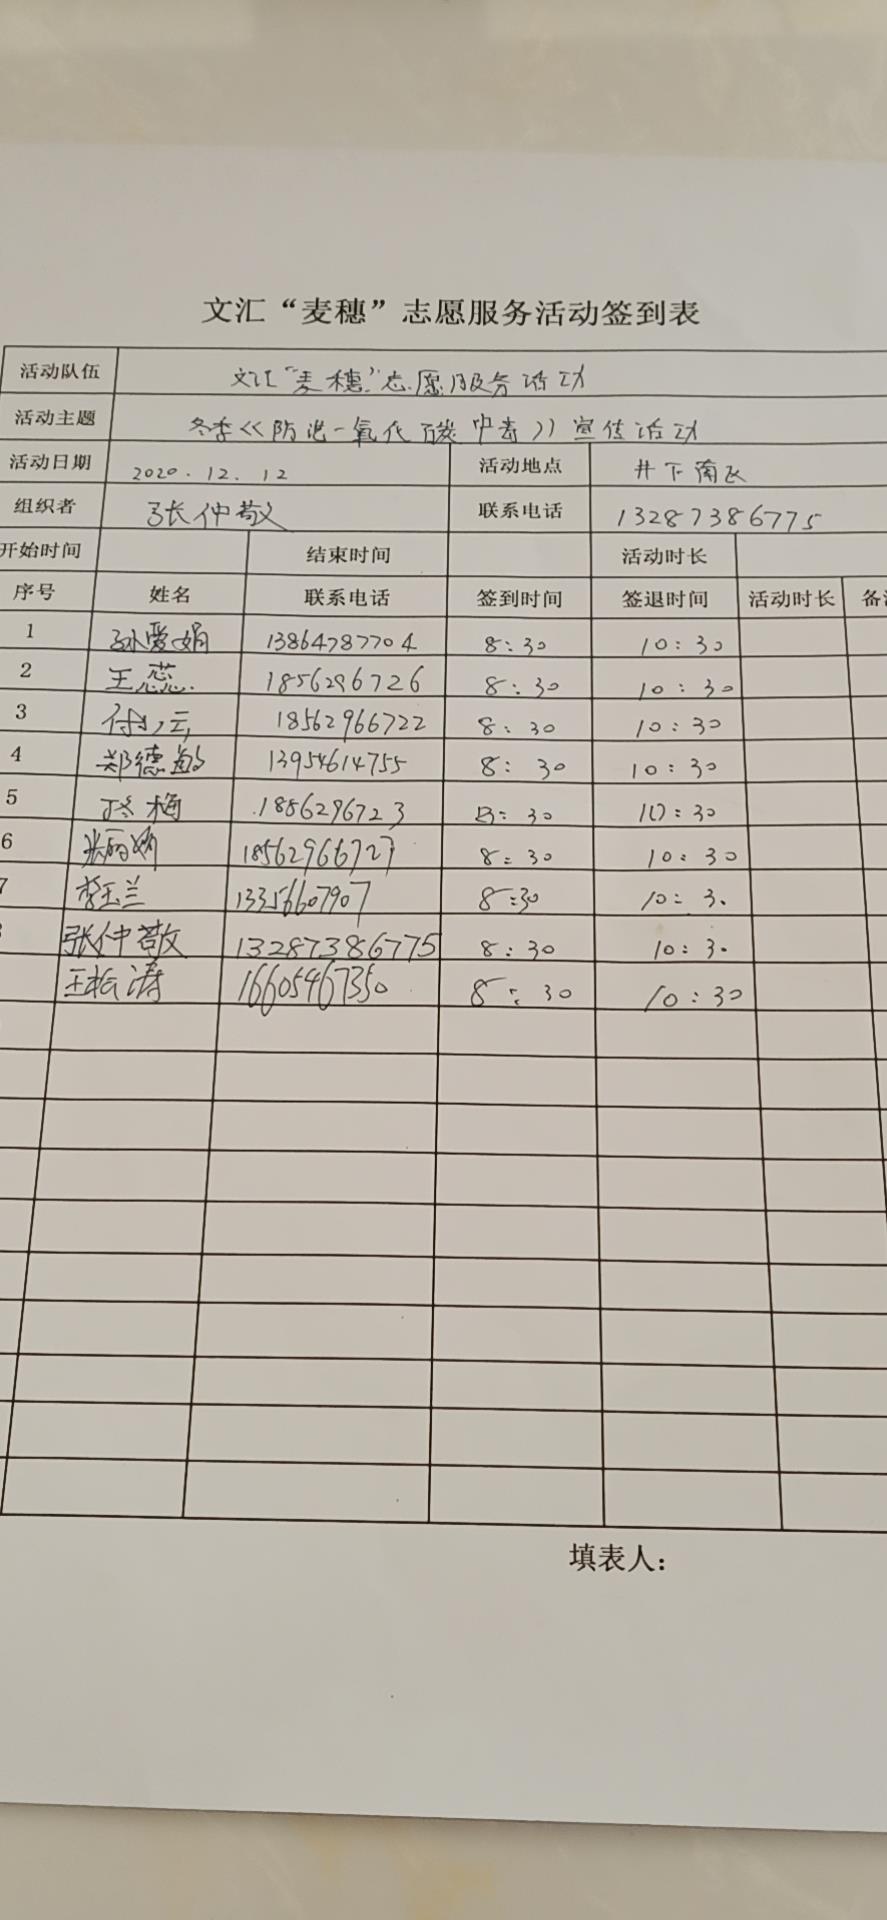 文汇“麦穗”志愿服务活动签到表
活动队伍 文汇“麦穗”志愿服务活动
活动主题 冬季《防范一氧化碳中毒》宣传活动
活动日期 2020.12.12 活动地点 井下南区
组织者 张仲敬 联系电话 13287386775
开始时间 结束时间 活动时长
序号 姓名 联系电话 签到时间 签退时间 活动时长 备
1 孙爱娟 13864787704 8:30 10:30
2 王蕊 1856296726 8:30 10:30
3 18562966722 8:30 10:30
4 郑德敏 13954614755 8:30 10:30
5 梅 1856296723 8:30 10:30
6 张丽娟 18562966727 8:30 10:30
7 李玉兰 13356607907 8:30 10:3.
张仲敬 13287386775 8:30 10:3.
王振涛 16605467350 8:30 10:30
填表人: